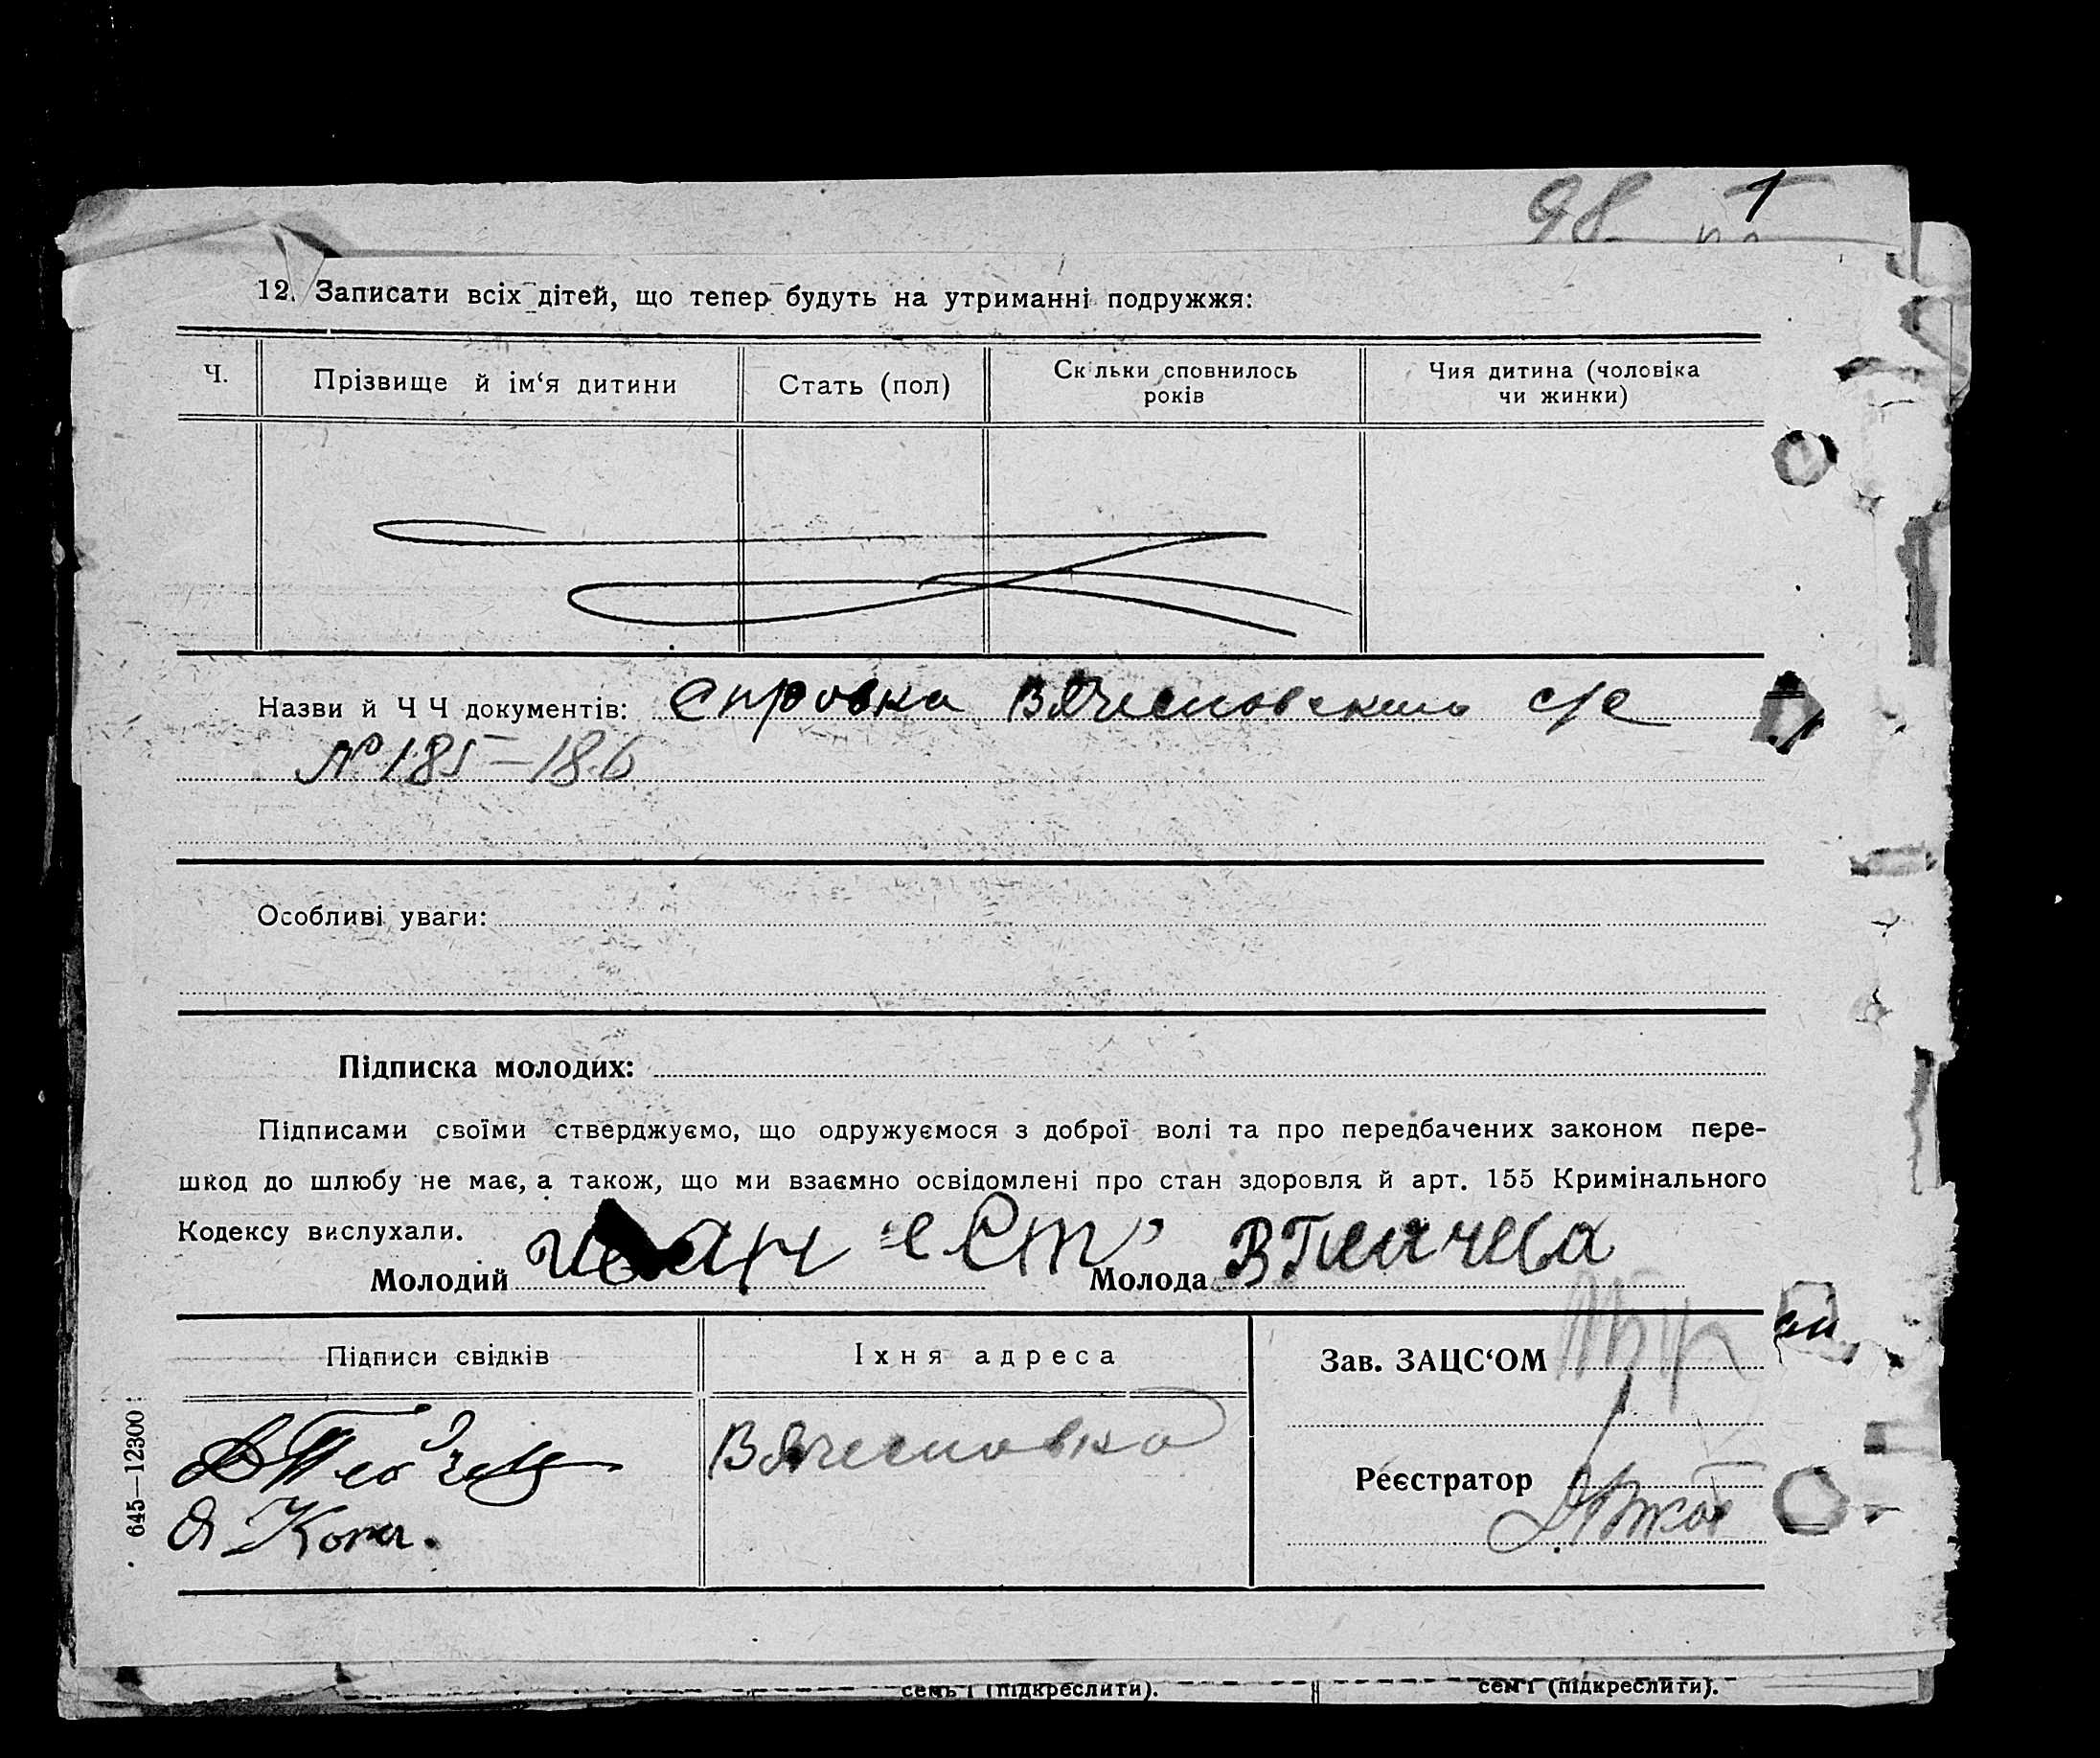 98
12. Записати всіх дітей, що тепер будуть на утриманні подружжя:
Ч.
Прізвище й ім‘я дитини
Стать (пол)
Скільки сповнилось
років
Чия дитина (чоловіка
чи жинки)
Назви й Ч Ч документів: Справка Вячесловского с/с
№ 185–186
Особливі уваги:
Підписка молодих:
Підписами своїми стверджуємо, що одружуємося з доброї волі та про передбачених законом пере-
шкод до шлюбу не має, а також, що ми взаємно освідомлені про стан здоровля й арт. 155 Кримінального
Кодексу вислухали.
Молодий
Молода
Підписи свідків
Їхня адреса
Зав. ЗАЦС‘ОМ
Вячесловка
Реєстратор
645—12300
сем'ї (підкреслити).
сем'ї (підкреслити).